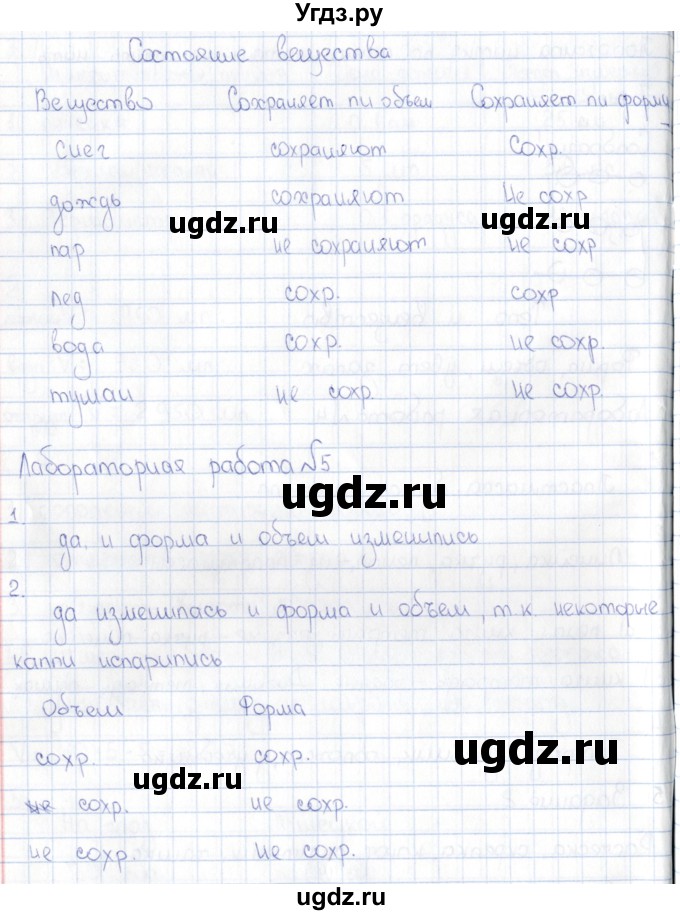 Угдз.ру
Состояние вещества
Вещество Сохраняет ли объем Сохраняет ли форму
снег сохраняют Сохр.
дождь сохраняют Не сохр
ugdz.ru ugdz.ru
пар не сохраняют не сохр
лед сохр. сохр
вода сохр. не сохр.
туман не сохр. не сохр.
Лабораторная работа №5
ugdz.ru
1.
да. и форма и объем изменились
2.
да изменилась и форма и объем, т.к. некоторые
капли испарились
Объем Форма
сохр. сохр.
ugdz.ru
ugdz.ru
не сохр. не сохр.
не сохр. не сохр.
ugdz.ru